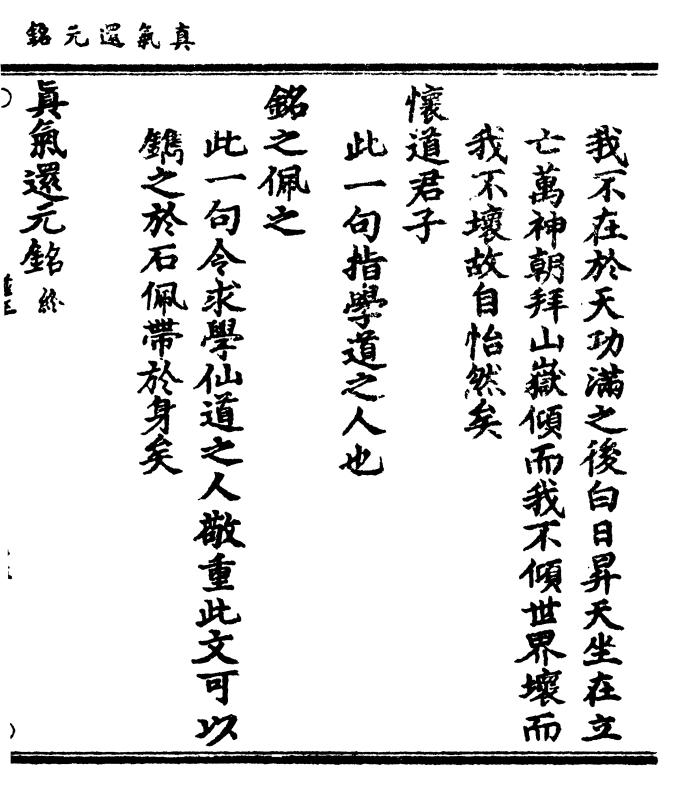 真氣還元銘
我不在於天功滿之後白日昇天坐在立
亡萬神朝拜山嶽傾而我不傾世界壞而
我不壞故自怡然矣
懷道君子
此一句指學道之人也
銘之佩之
此一句令求學仙道之人敬重此文可以
鐫之於石佩帶於身矣
眞氣還元銘終